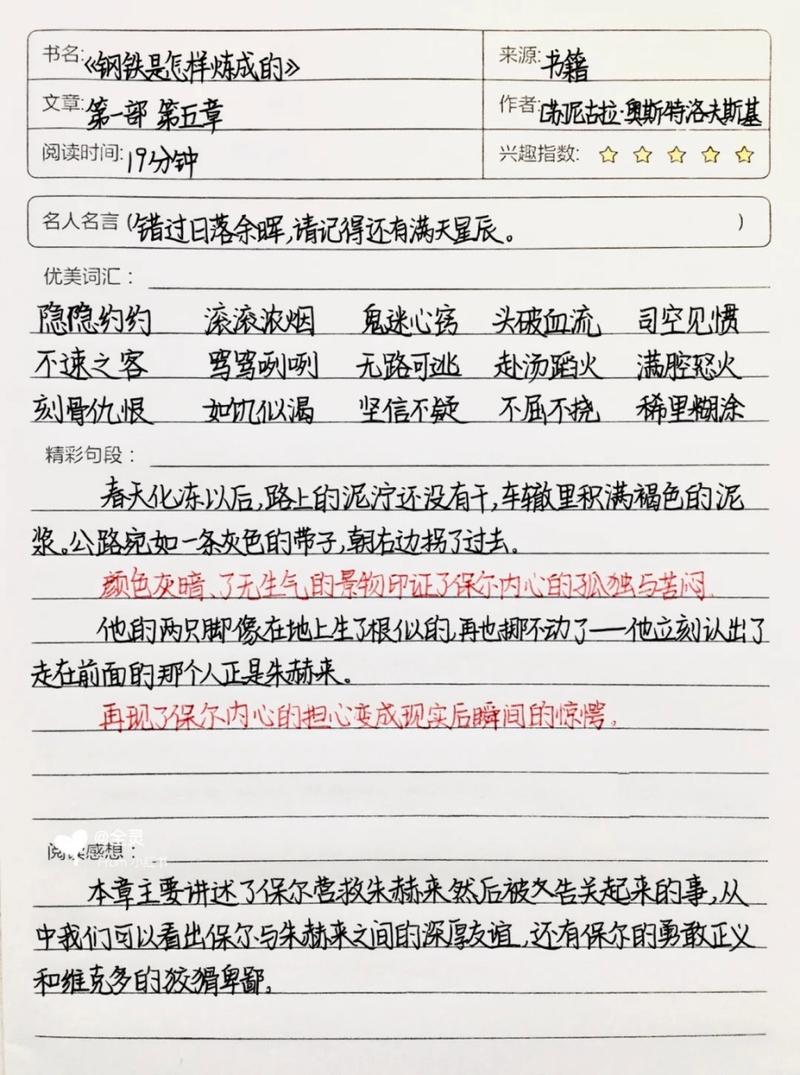 书名:《钢铁是怎样炼成的》 来源:书籍
文章:第一部 第五章 作者:[苏]尼古拉·奥斯特洛夫斯基
阅读时间:19分钟 兴趣指数:
名人名言(错过日落余晖,请记得还有满天星辰。)
优美词汇:
隐隐约约 滚滚浓烟 鬼迷心窍 头破血流 司空见惯
不速之客 骂骂咧咧 无路可逃 赴汤蹈火 满腔怒火
刻骨仇恨 如饥似渴 坚信不疑 不屈不挠 稀里糊涂
精彩句段:
春天化冻以后,路上的泥泞还没有干,车辙里积满褐色的泥
浆。公路宛如一条灰色的带子,朝右边拐了过去。
颜色灰暗、了无生气的景物印证了保尔内心的孤独与苦闷.
他的两只脚像在地上生了根似的,再也挪不动了——他立刻认出了
走在前面的那个人正是朱赫来。
再现了保尔内心的担心变成现实后瞬间的惊愕。
@全灵
阅读感想:
本章主要讲述了保尔营救朱赫来然后被告关起来的事,从
中我们可以看出保尔与朱赫来之间的深厚友谊,还有保尔的勇敢正义
和维克多的狡猾卑鄙。